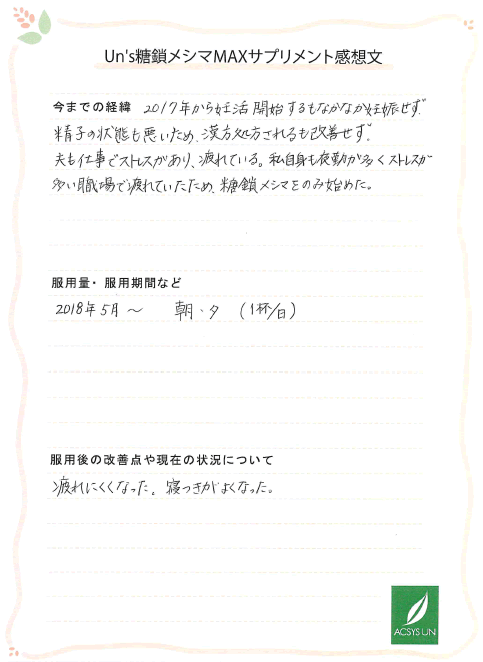 Un's糖鎖メシマMAXサプリメント感想文
今までの経緯 2017年から妊活開始するもなかなか妊娠せず。
精子の状態も悪いため、漢方処方されるも改善せず。
夫も仕事でストレスがあり、疲れている。私自身も夜勤が多くストレスが
多い職場で疲れていたため、糖鎖メシマをのみ始めた。
服用量・服用期間など
2018年5月〜 朝・夕 (1杯/日)
服用後の改善点や現在の状況について
疲れにくくなった。寝つきがよくなった。
ACSYS UN